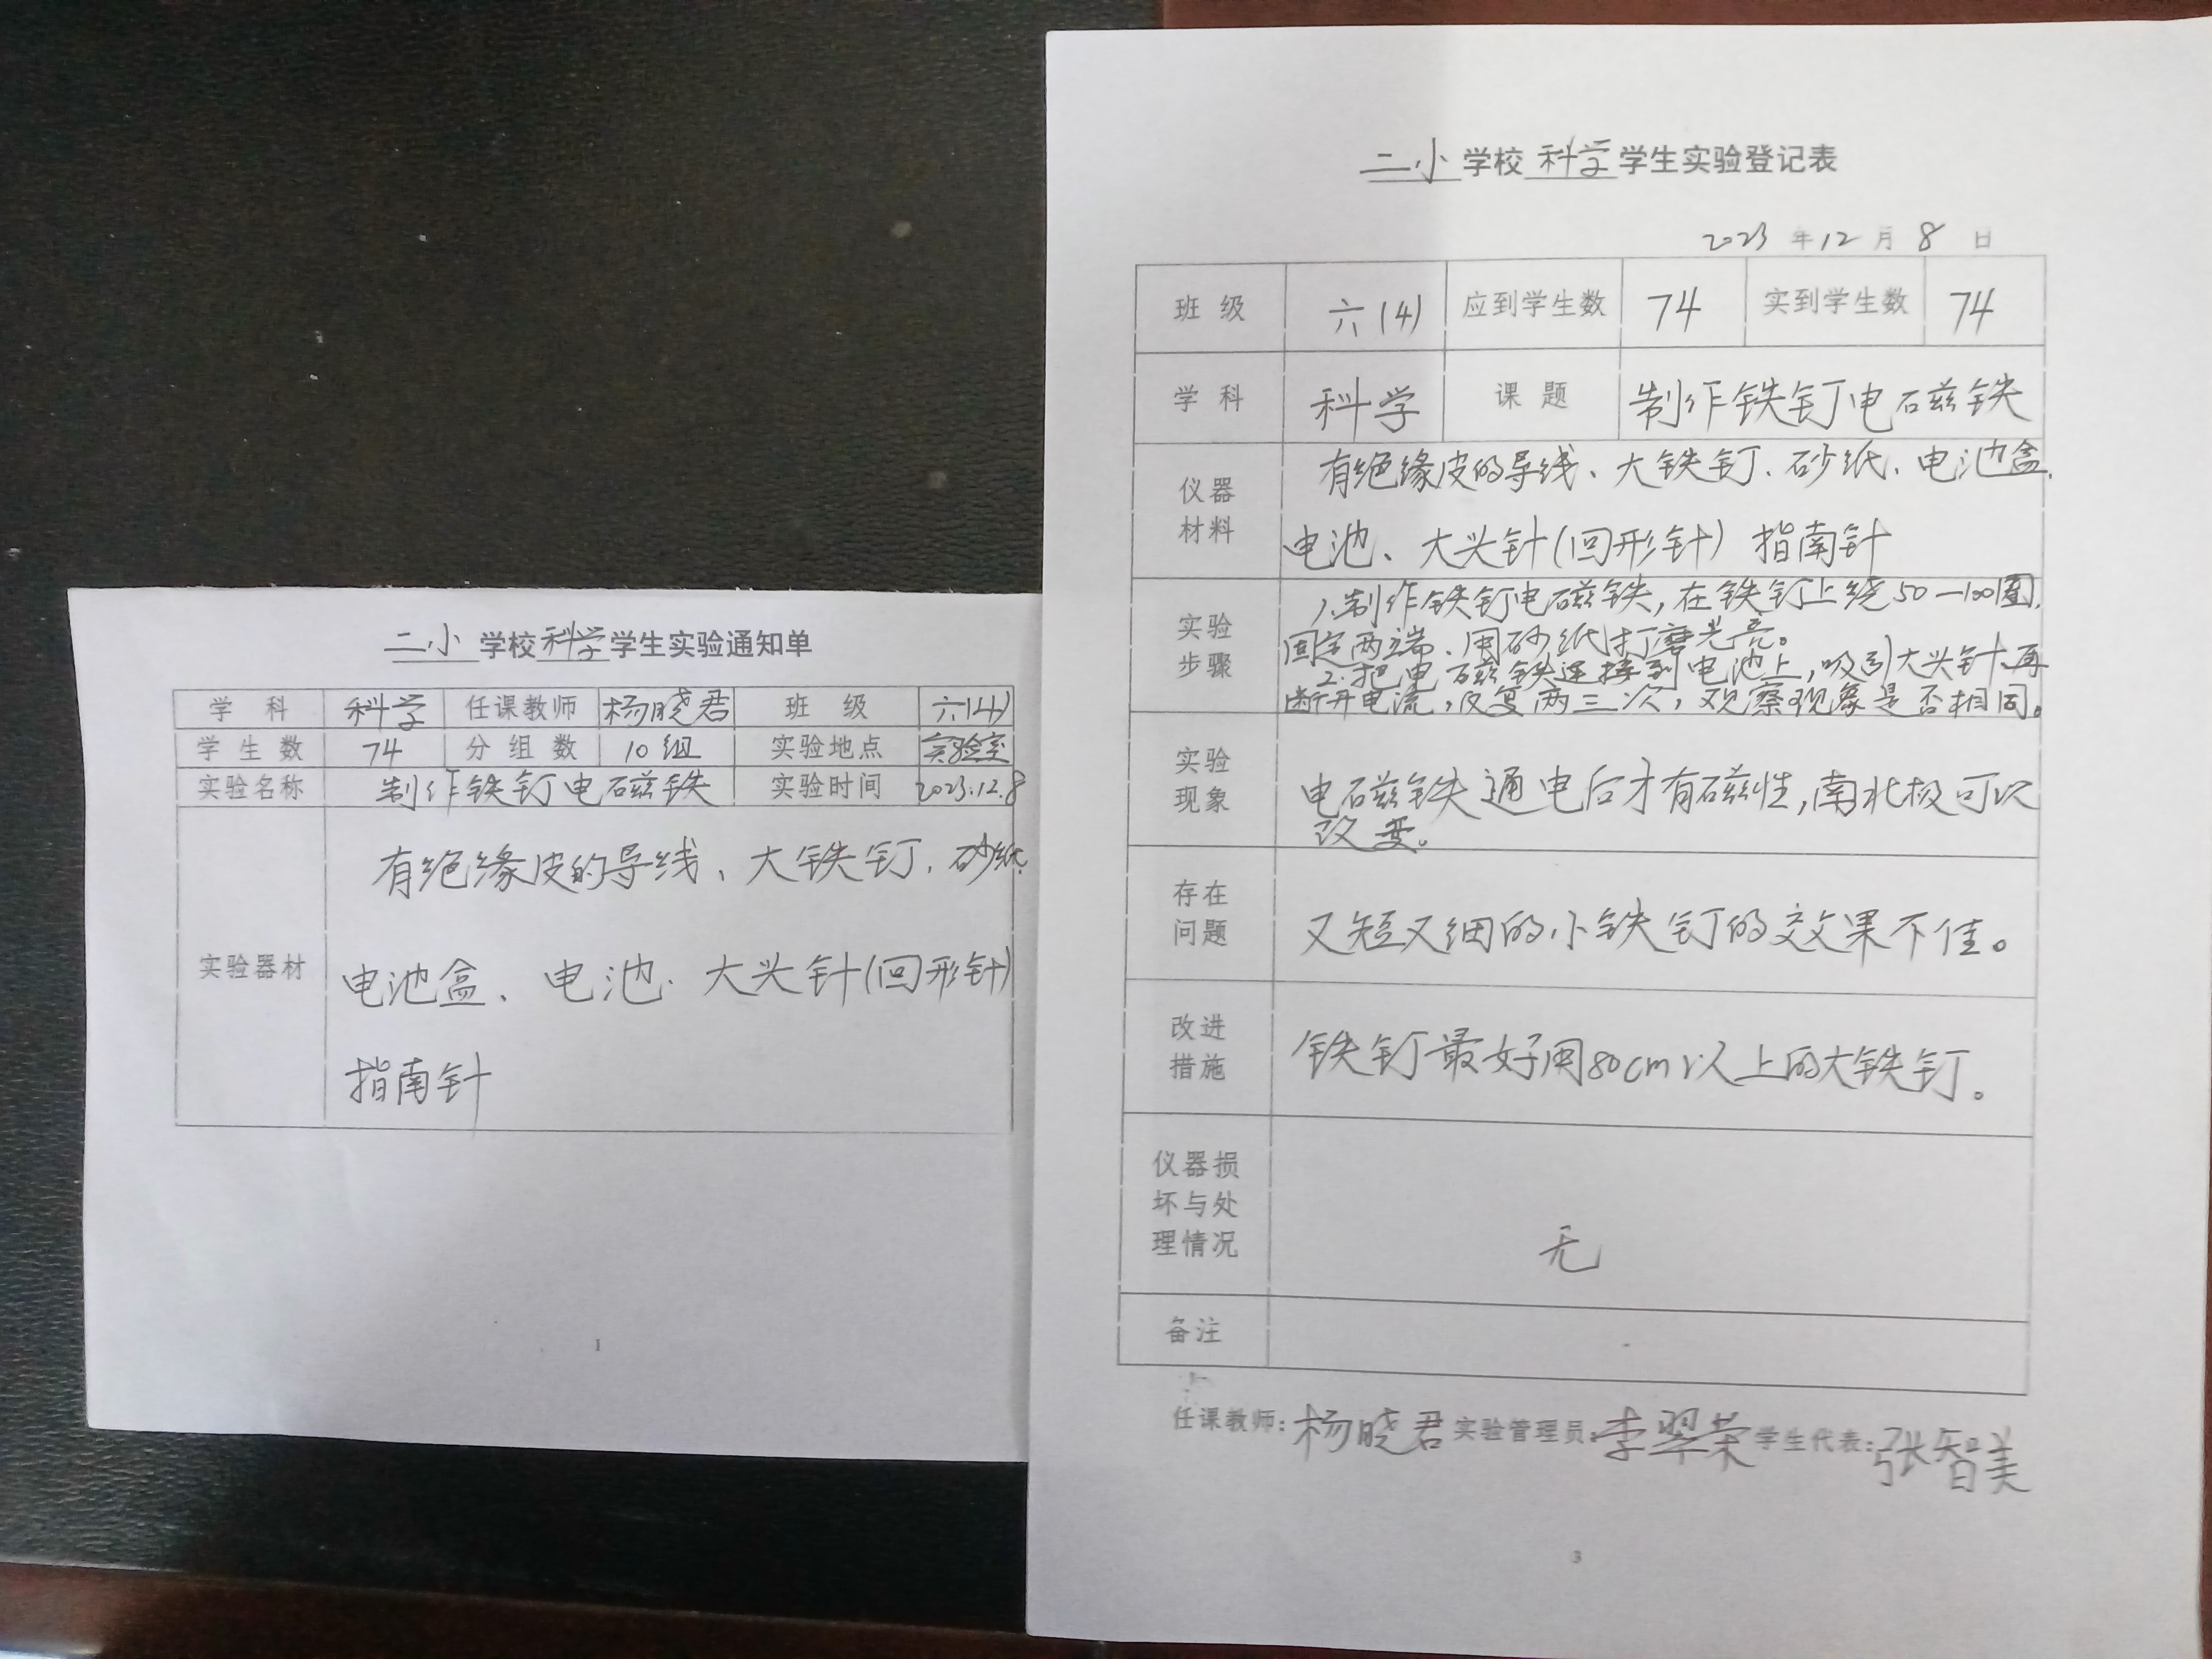 二小学校科学学生实验通知单
学科 科学 任课教师 杨晓君 班级 六(4)
学生数 74 分组数 10组 实验地点 实验室
实验名称 制作铁钉电磁铁 实验时间 2023.12.8
有绝缘皮的导线、大铁钉、砂纸、
实验器材
电池盒、电池、大头针(回形针)
指南针
1
二小学校科学学生实验登记表
2023年12月8日
班级 六(4) 应到学生数 74 实到学生数 74
学科 科学 课题 制作铁钉电磁铁
仪器
材料
有绝缘皮的导线、大铁钉、砂纸、电池盒、
电池、大头针(回形针) 指南针
实验
步骤
1.制作铁钉电磁铁,在铁钉上绕50—100圈,
固定两端、用砂纸打磨光亮。
2.把电磁铁连接到电池上,吸引大头针、再
断开电流,反复两三次,观察现象是否相同。
实验
现象
电磁铁通电后才有磁性,南北极可以
改变。
存在
问题
又短又细的小铁钉的效果不佳。
改进
措施
铁钉最好用80cm以上的大铁钉。
仪器损
坏与处
理情况
无
备注
任课教师:杨晓君 实验管理员:李翠荣 学生代表:张智美
3